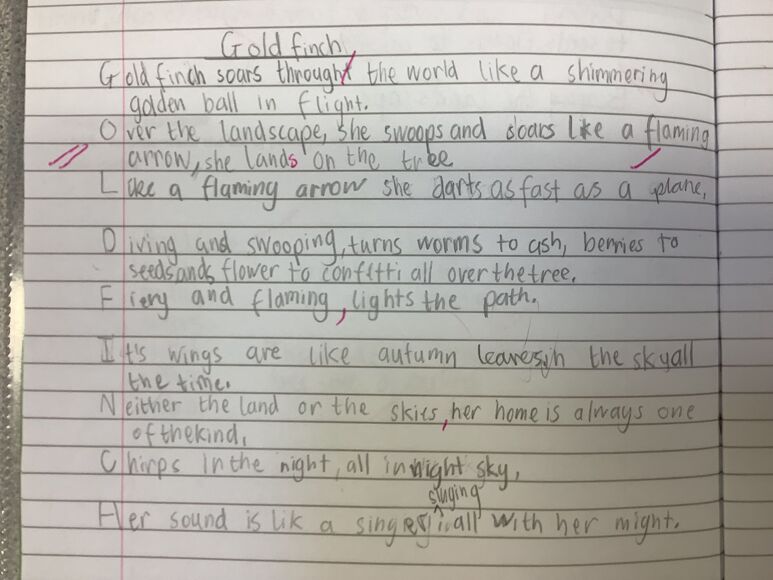 Gold finch
Gold finch soars through the world like a shimmering
golden ball in flight.
Over the landscape, she swoops and soars like a flaming
arrow, she lands on the tree
Like a flaming arrow she darts as fast as a plane,
Diving and swooping, turns worms to ash, berries to
seeds ands flower to confitti all over the tree.
Fiery and flaming, lights the path.
It's wings are like autumn leaves in the sky all
the time.
Neither the land or the skies, her home is always one
of the kind,
Chirps in the night, all in night sky,
singing
Her sound is lik a singer all with her might.